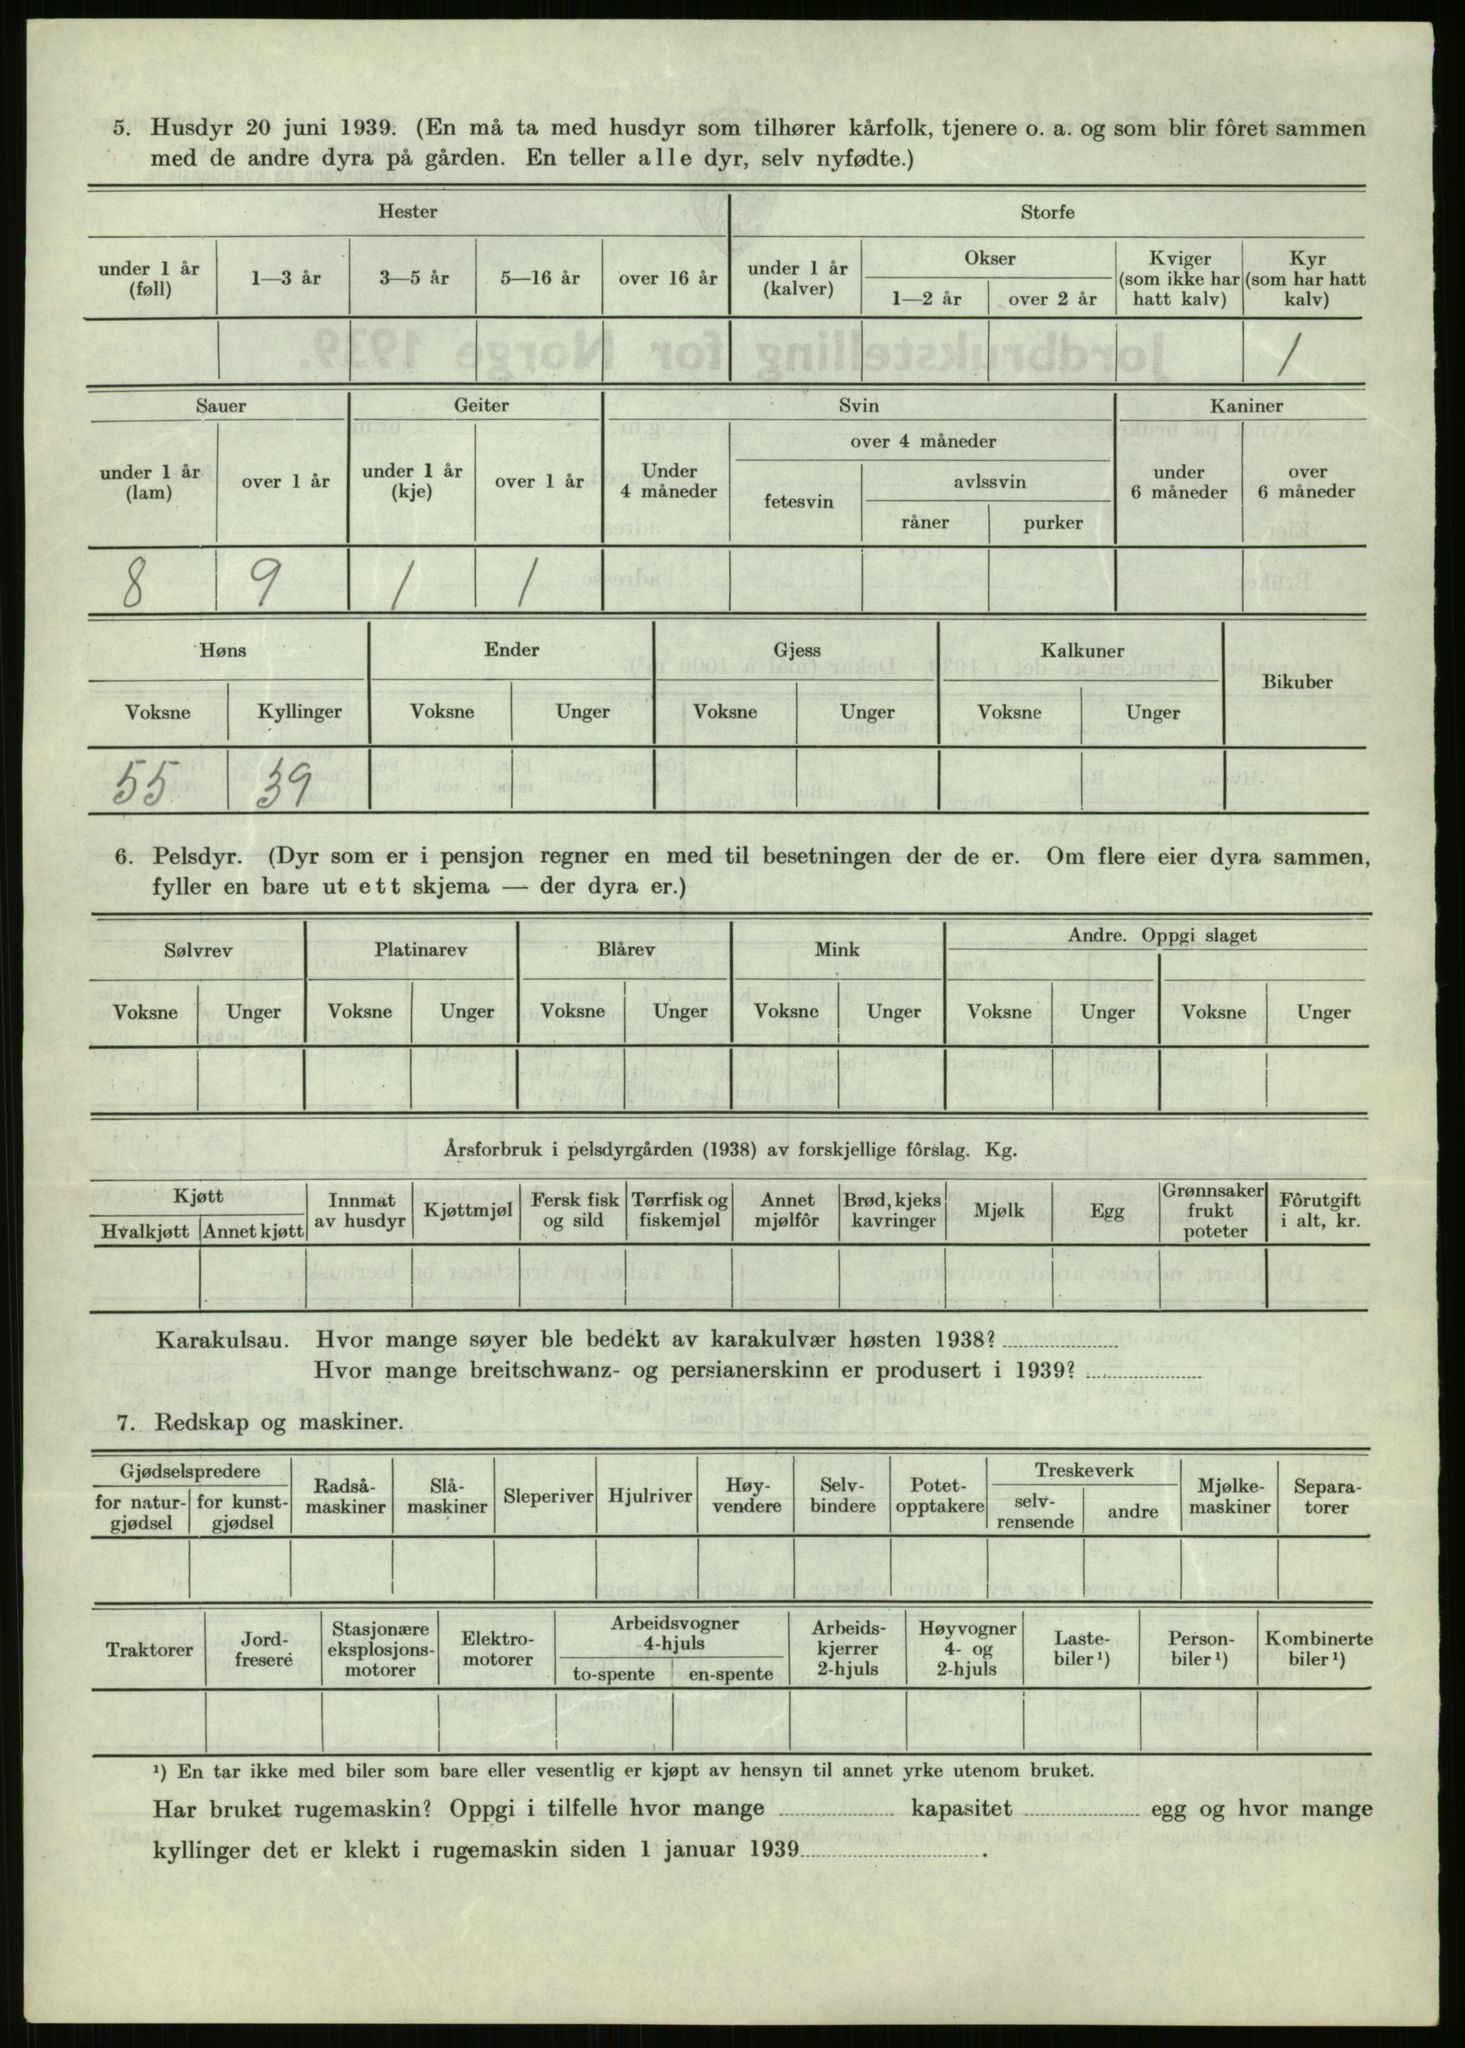 5. Husdyr 20 juni 1939. (En må ta med husdyr som tilhører kårfolk, tjenere o. a. og som blir fôret sammen
med de andre dyra på gården. En teller alle dyr, selv nyfødte.)
Hester Storfe
under 1 år (føll) 1—3 år 3—5 år 5—16 år over 16 år under 1 år (kalver) Okser 1—2 år over 2 år Kviger (som ikke har hatt kalv) Kyr (som har hatt kalv)
1
Sauer Geiter Svin Kaniner
under 1 år (lam) over 1 år under 1 år (kje) over 1 år Under 4 måneder over 4 måneder fetesvin avlssvin råner purker under 6 måneder over 6 måneder
8 9 1 1
Høns Ender Gjess Kalkuner Bikuber
Voksne Kyllinger Voksne Unger Voksne Unger Voksne Unger
55 39
6. Pelsdyr. (Dyr som er i pensjon regner en med til besetningen der de er. Om flere eier dyra sammen,
fyller en bare ut ett skjema — der dyra er.)
Sølvrev Platinarev Blårev Mink Andre. Oppgi slaget
Voksne Unger Voksne Unger Voksne Unger Voksne Unger Voksne Unger Voksne Unger
Årsforbruk i pelsdyrgården (1938) av forskjellige fôrslag. Kg.
Kjøtt Hvalkjøtt Annet kjøtt Innmat av husdyr Kjøttmjøl Fersk fisk og sild Tørrfisk og fiskemjøl Annet mjølfôr Brød, kjeks kavringer Mjølk Egg Grønnsaker frukt poteter Fôrutgift i alt, kr.
Karakulsau. Hvor mange søyer ble bedekt av karakulvær høsten 1938?
Hvor mange breitschwanz- og persianerskinn er produsert i 1939?
7. Redskap og maskiner.
Gjødselspredere for natur-gjødsel for kunst-gjødsel Radså-maskiner Slå-maskiner Sleperiver Hjulriver Høy-vendere Selv-bindere Potet-opptakere Treskeverk selv-rensende andre Mjølke-maskiner Separa-torer
Traktorer Jord-fresere Stasjonære eksplosjons-motorer Elektro-motorer Arbeidsvogner 4-hjuls to-spente en-spente Arbeids-kjerrer 2-hjuls Høyvogner 4- og 2-hjuls Laste-biler ¹) Person-biler ¹) Kombinerte biler ¹)
¹) En tar ikke med biler som bare eller vesentlig er kjøpt av hensyn til annet yrke utenom bruket.
Har bruket rugemaskin? Oppgi i tilfelle hvor mange kapasitet egg og hvor mange
kyllinger det er klekt i rugemaskin siden 1 januar 1939 .